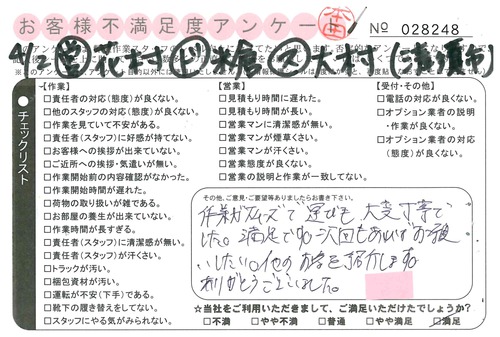 お客様不満足度アンケート
本田
No 028248
4/2 営 花村 ド 水倉 ス 大村 (清須市)
チェックリスト
【作業】
□責任者の対応(態度)が良くない。
□他のスタッフの対応(態度)が良くない。
□作業を見ていて不安がある。
□責任者(スタッフ)に好感が持てない。
□お客様への挨拶が出来ていない。
□ご近所への挨拶・気遣いが無い。
□作業開始前の内容確認がなかった。
□作業開始時間が遅れた。
□荷物の取り扱いが雑である。
□お部屋の養生が出来ていない。
□作業時間が長すぎる。
□責任者(スタッフ)に清潔感が無い。
□責任者(スタッフ)が汗くさい。
□トラックが汚い。
□梱包資材が汚い。
□運転が不安(下手)である。
□靴下の履き替えをしてない。
□スタッフにやる気がみられない。
【営業】
□見積もり時間に遅れた。
□見積もり時間が長い。
□営業マンに清潔感が無い。
□営業マンが煙草くさい。
□営業マンが汗くさい。
□営業態度が良くない。
□営業の説明と作業が一致してない。
【受付・その他】
□電話の対応が良くない。
□オプション業者の説明
・作業が良くない。
□オプション業者の対応
(態度)が良くない。
その他、ご意見・ご要望等ありましたらお書き下さい。
作業がスムーズで運びも大変丁寧で
した。満足です。次回もあればお願
いしたい。他のお客を紹介します。
ありがとうございました。
☆当社をご利用いただきまして、ご満足いただけたでしょうか?
□不満 □やや不満 □普通 □やや満足 □満足